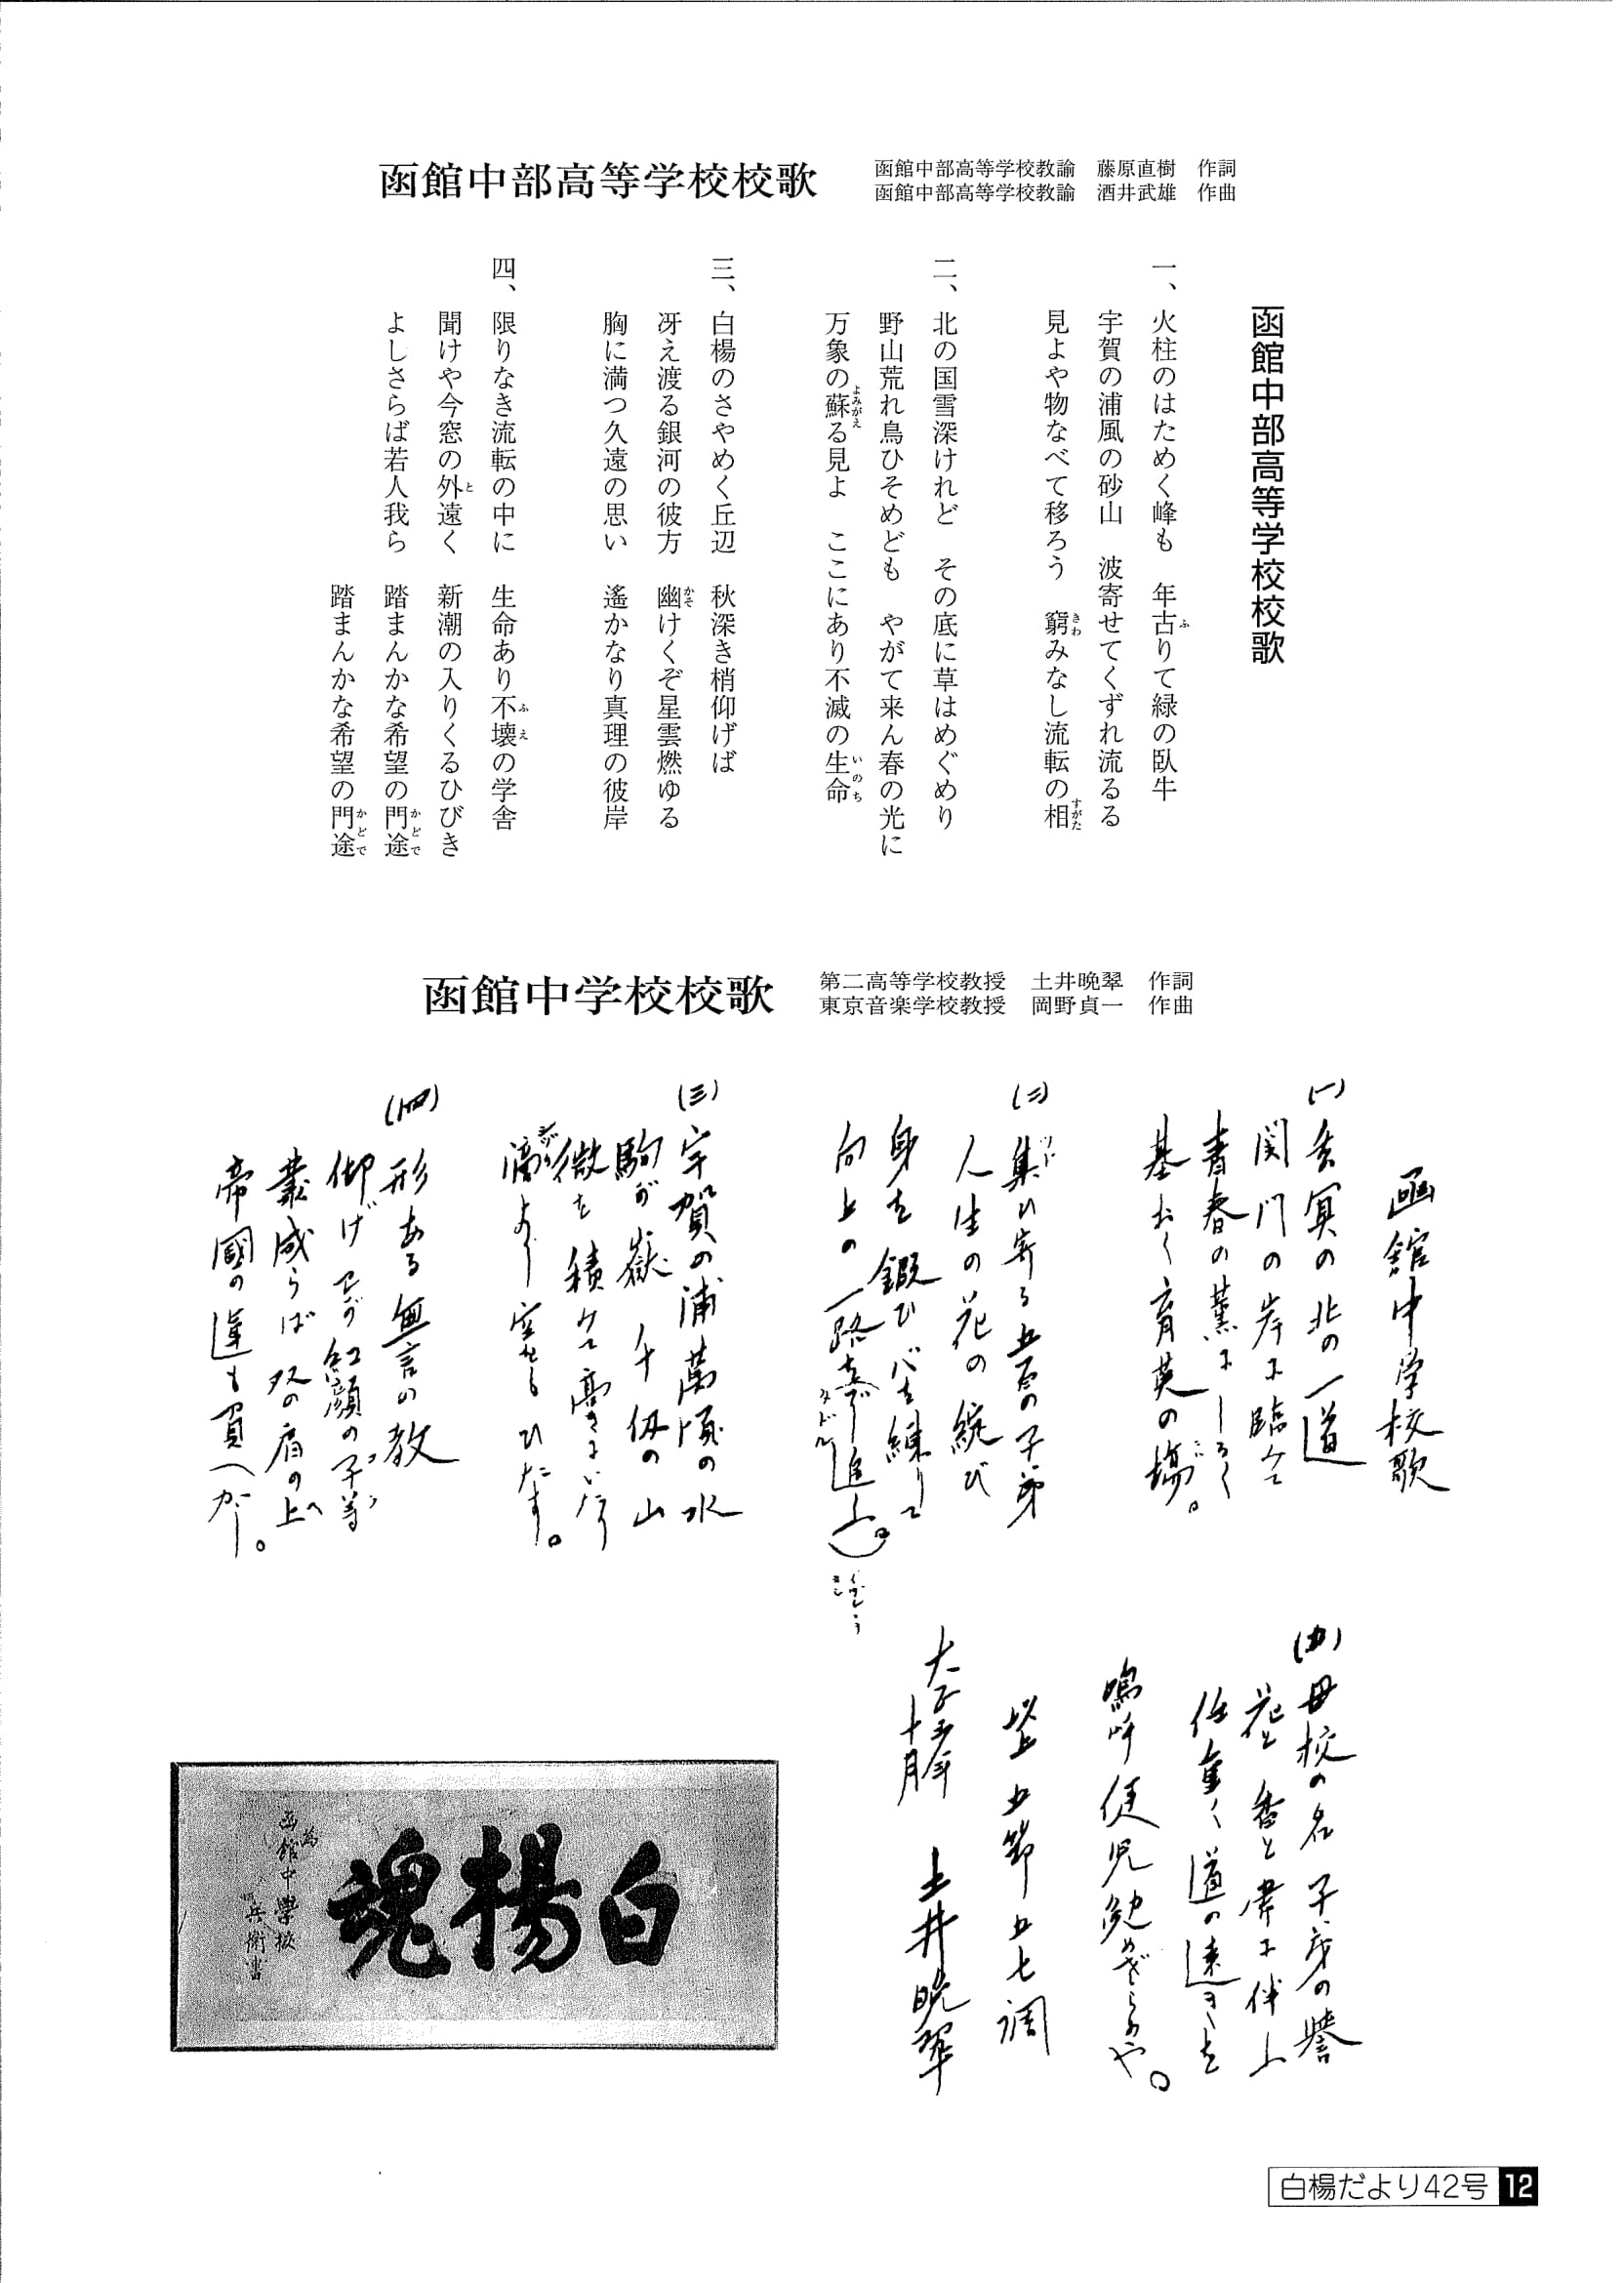 函館中部高等学校校歌
函館中部高等学校教諭　藤原直樹　作詞
函館中部高等学校教諭　酒井武雄　作曲
函館中部高等学校校歌
一、火柱のはためく峰も　年古りて緑の臥牛
宇賀の浦風の砂山　波寄せてくずれ流るる
見よや物なべて移ろう　窮みなし流転の相
二、北の国雪深けれど　その底に草はめぐめり
野山荒れ鳥ひそめども　やがて来ん春の光に
万象の蘇る見よ　ここにあり不滅の生命
三、白楊のさやめく丘辺　秋深き梢仰げば
冴え渡る銀河の彼方　幽けくぞ星雲燃ゆる
胸に満つ久遠の思い　遙かなり真理の彼岸
四、限りなき流転の中に　生命あり不壊の学舎
聞けや今窓の外遠く　新潮の入りくるひびき
よしさらば若人我ら　踏まんかな希望の門途
踏まんかな希望の門途
函館中学校校歌
第二高等学校教授　土井晩翠　作詞
東京音楽学校教授　岡野貞一　作曲
函館中学校歌
(一)冥の北の一道
関門の岸に臨みて
青春の薫にしるく
基おく育英の場。
(二)集ひ寄る五百の子弟
人生の花の綻び
身を鍛ひ心を練りて
向上の一路を進む。
(三)宇賀の浦萬頃の水
駒が嶽千仭の山
微を積みて高きにいたり
滴より空をひたす。
(四)形ある無言の教
仰げわが紅顔の子等
業成らば双の肩の上へ
帝國の運も負へかし。
(五)母校の名子弟の譽
花と香と常に伴ふ
任重く道の遠きを
嗚呼健児勉めざらめや。
以上五節五七調
大正五年十月　土井晩翠
白楊魂
為
函館中學校
兵衛書
白楊だより42号 12